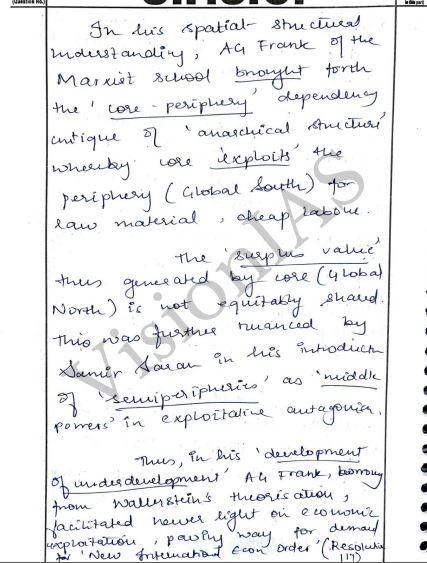 (Question No.)
in this part)
In his spatial-structural
understanding, AG Frank of the
Marxist school brought forth
the 'core-periphery' dependency
critique of 'anarchical structure'
whereby core 'exploits' the
periphery (Global South) for
raw material, cheap labour.
The 'surplus value'
thus generated by core (Global
North) is not equitably shared.
This was further nuanced by
Samir Saran in his introductn
of 'semiperipheries' as 'middle
powers' in exploitative antagonism.
Thus, in his 'development
of underdevelopment' AG Frank, borrowing
from Wallerstein's theorisation,
facilitated newer light on economic
exploitation, paving way for demand
for 'New International Econ Order' (Resolution
VisionIAS